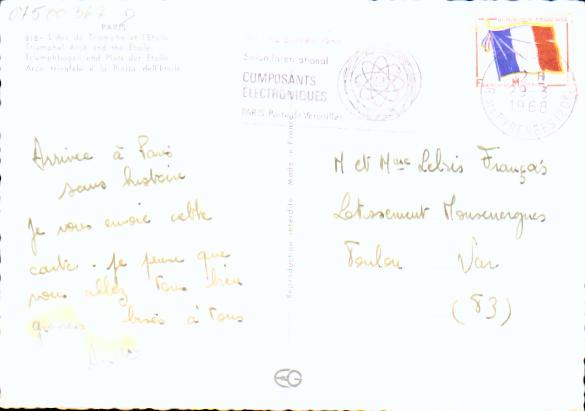 07500367
PARIS
L'Arc de Triomphe et l'Etoile
Triumphal Arch and the Etoile
Triumphbogen und Platz der Etoile
Arco trionfale e la Piazza dell'Etoile
Salon International
COMPOSANTS
ÉLECTRONIQUES
PARIS Porte de Versailles
REPUBLIQUE FRANÇAISE
F M
1968
Arrivée à Paris
sans histoire
Je vous envoie cette
carte. Je pense que
vous allez tous bien
bises à tous
M et Mme Lebris François
Lotissement Monsenergues
Toulon Var
(83)
Reproduction interdite Made in France